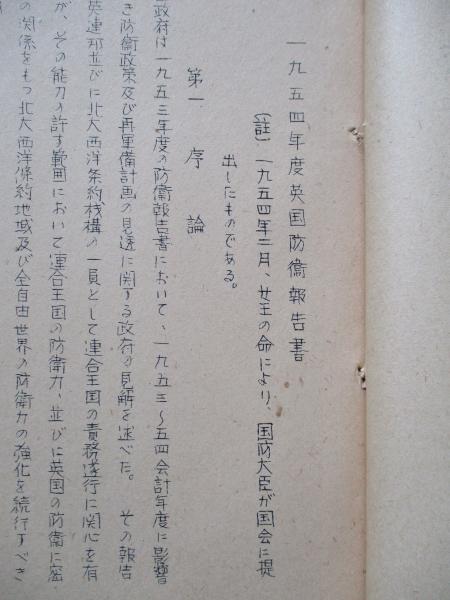 一九五四年度英国防衛報告書
(註) 一九五四年二月、女王の命により、国防大臣が国会に提
出したものである。
第一 序論
政府は一九五三年度の防衛報告書において、一九五三〜五四会計年度に影響
き防衛政策及び再軍備計画の見透に関する政府の見解を述べた。 その報告
英連邦並びに北大西洋条約栈構の一員として連合王国の責務遂行に関心を有
が、その能力の許す範囲において連合王国の防衛力、並びに英国の防衛に密
の関係をもつ北大西洋條約地域及び全自由世界の防衛力の強化を続行すべき